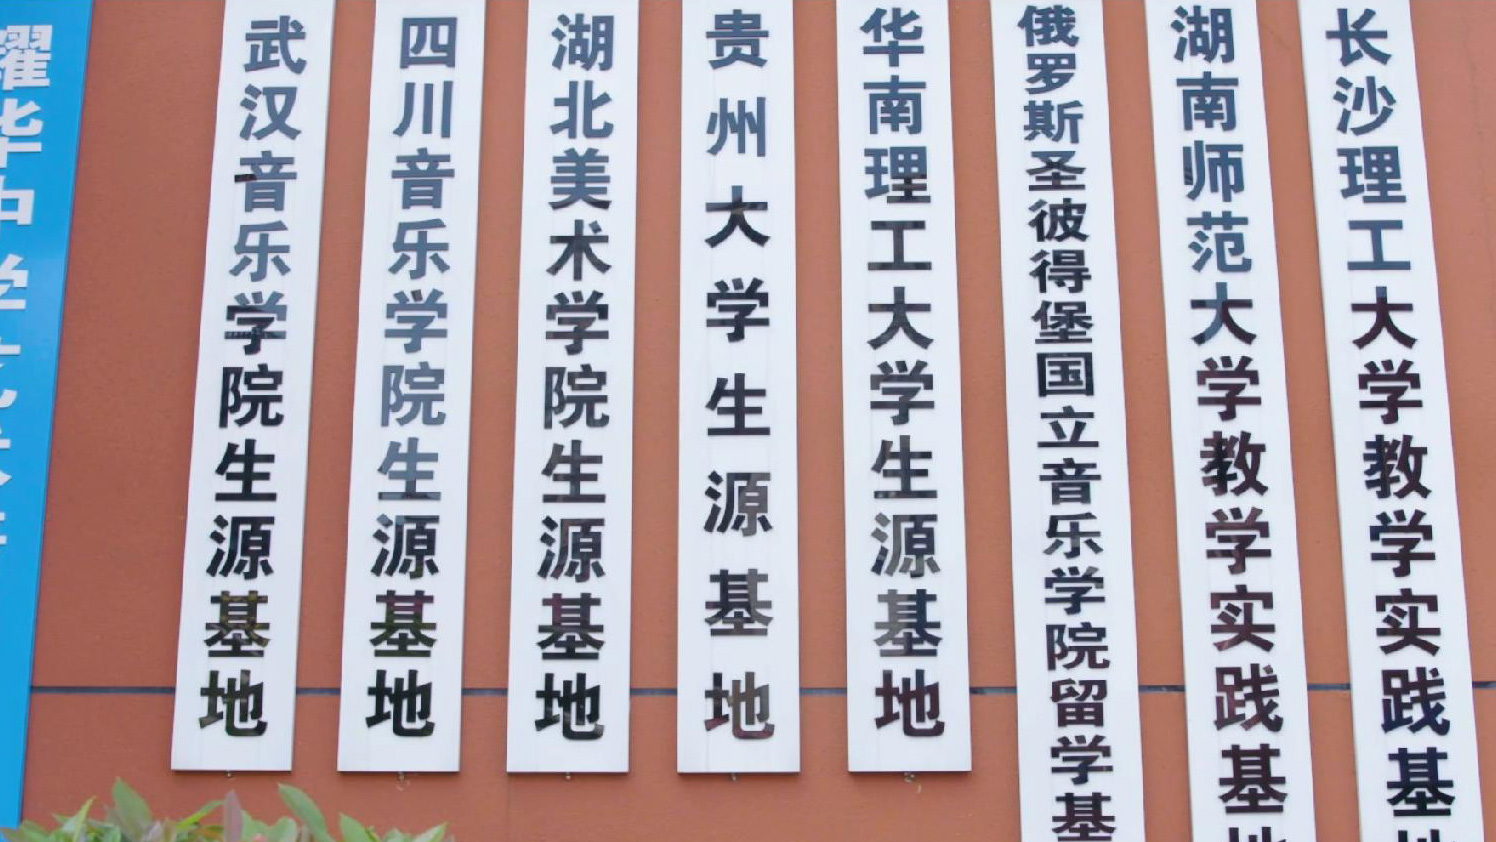 耀华中学
武汉音乐学院生源基地
四川音乐学院生源基地
湖北美术学院生源基地
贵州大学生源基地
华南理工大学生源基地
俄罗斯圣彼得堡国立音乐学院留学基
湖南师范大学教学实践基地
长沙理工大学教学实践基地